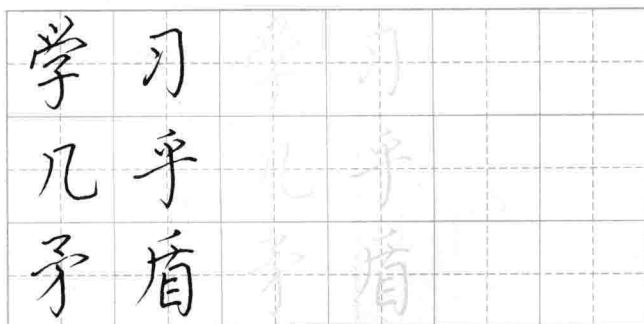 学习学习
几乎几乎
矛盾矛盾